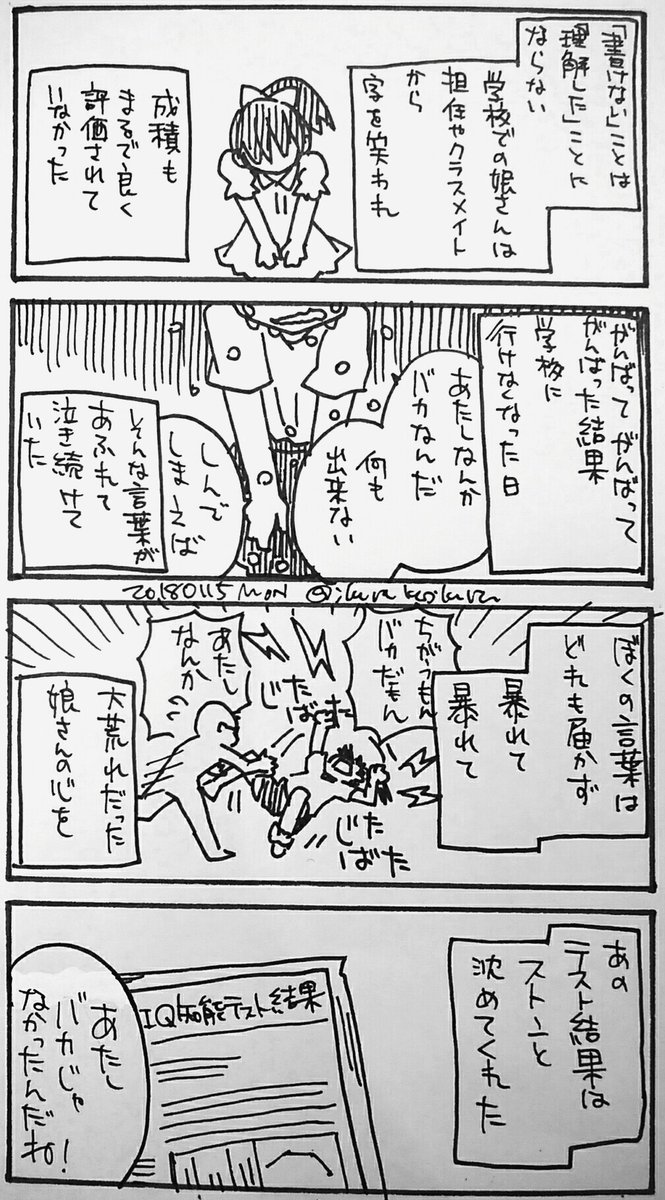 「書けない」ことは
「理解した」ことに
ならない
学校での娘さんは
担任やクラスメイト
から
字を笑われ
成績も
まるで良く
評価されて
いなかった
がんばってがんばって
がんばった結果
学校に
行けなくなった日
あたしなんか
バカなんだ
何も
出来ない
しんで
しまえば
そんな言葉が
あふれて
泣き続けて
いた
20180115 MON
ぼくの言葉は
どれも届かず
暴れて
暴れて
ちがうもん
バカだもん
あたし
なんか
じた
ばた
じた
ばた
大荒れだった
娘さんの心を
あの
テスト結果は
ストーンと
沈めてくれた
IQ知能テスト結果
あたし
バカじゃ
なかったんだね!